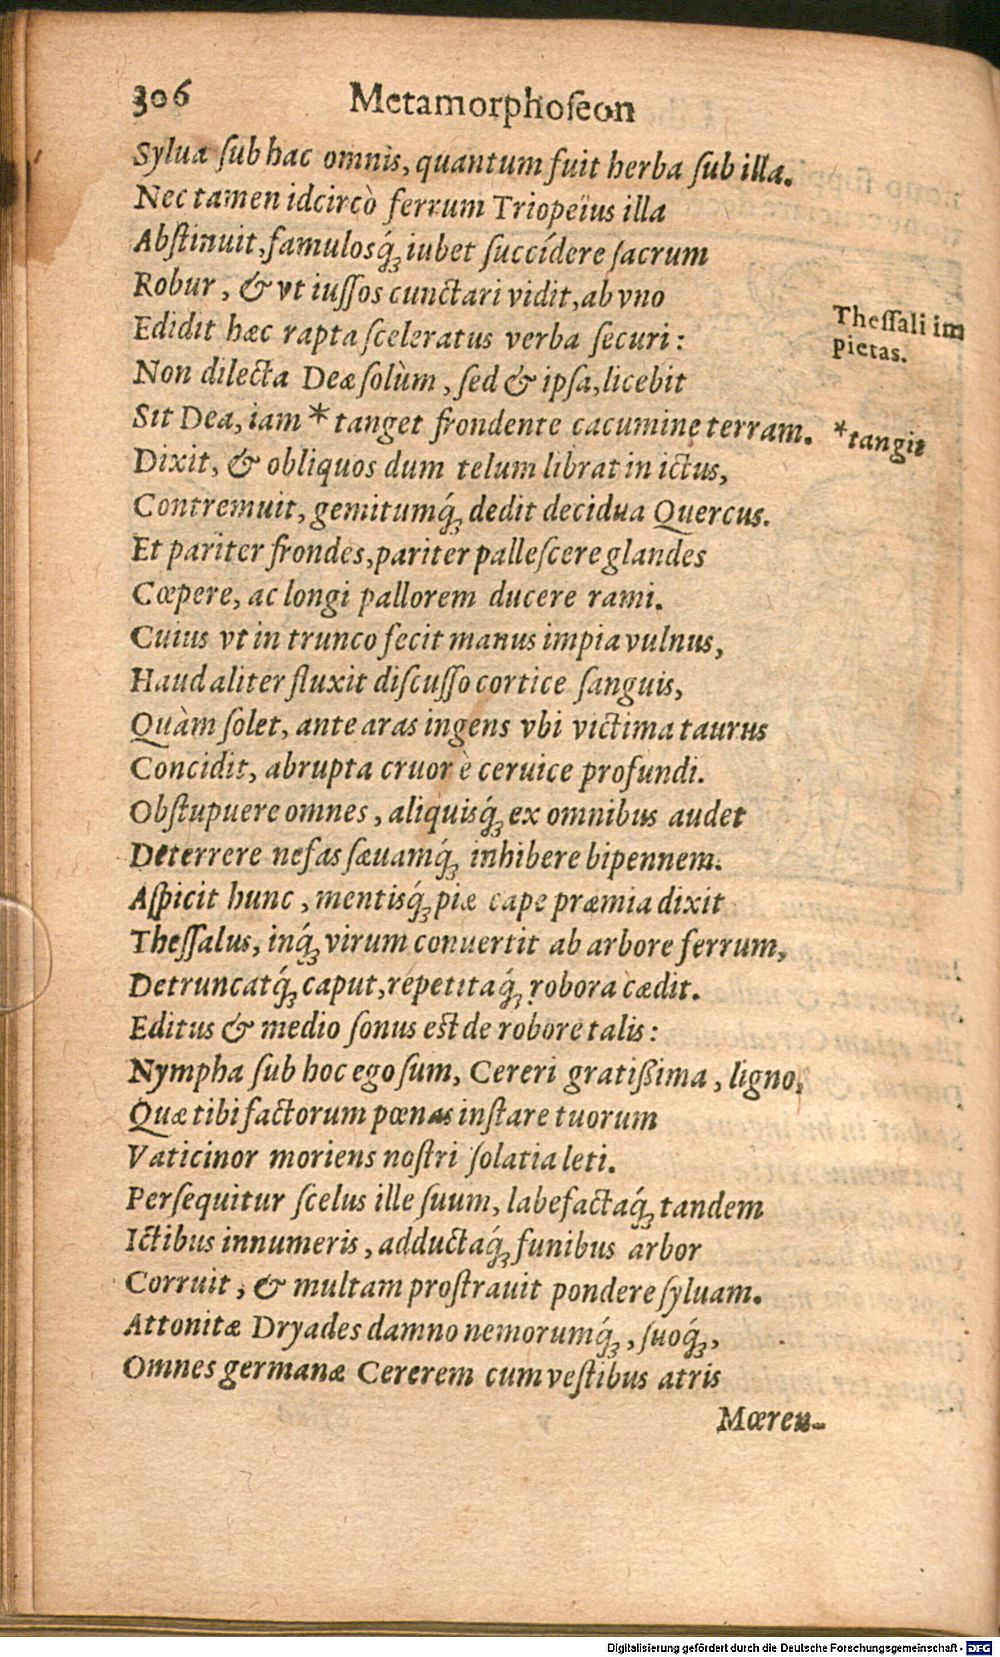 306 Metamorphoſeon
Sylua ſub hac omnis, quantum fuit herba ſub illa.
Nec tamen idcircò ferrum Triopeïus illa
Abſtinuit, famulosq́; iubet ſuccídere ſacrum
Robur, & vt iuſſos cunctari vidit, ab vno
Edidit hæc rapta ſceleratus verba ſecuri:
Theſſali im
pietas.
Non dilecta Deæ ſolùm, ſed & ipſa, licebit
Sit Dea, iam * tanget frondente cacumine terram.
* tangit
Dixit, & obliquos dum telum librat in ictus,
Contremuit, gemitumq́; dedit decidua Quercus.
Et pariter frondes, pariter palleſcere glandes
Cœpere, ac longi pallorem ducere rami.
Cuius vt in trunco fecit manus impia vulnus,
Haud aliter fluxit diſcuſſo cortice ſanguis,
Quàm ſolet, ante aras ingens vbi victima taurus
Concidit, abrupta cruor è ceruice profundi.
Obſtupuere omnes, aliquisq́; ex omnibus audet
Deterrere nefas ſæuamq́; inhibere bipennem.
Aſpicit hunc, mentisq́; piæ cape præmia dixit
Theſſalus, inq́; virum conuertit ab arbore ferrum,
Detruncatq́; caput, repetitaq́; robora cædit.
Editus & medio ſonus eſt de robore talis:
Nympha ſub hoc ego ſum, Cereri gratißima, ligno,
Quæ tibi factorum pœnas inſtare tuorum
Vaticinor moriens noſtri ſolatia leti.
Perſequitur ſcelus ille ſuum, labefactaq́; tandem
Ictibus innumeris, adductaq́; funibus arbor
Corruit, & multam proſtrauit pondere ſyluam.
Attonitæ Dryades damno nemorumq́;, ſuoq́;,
Omnes germanæ Cererem cum veſtibus atris
Mœren-
Digitalisierung gefördert durch die Deutsche Forschungsgemeinschaft - DFG